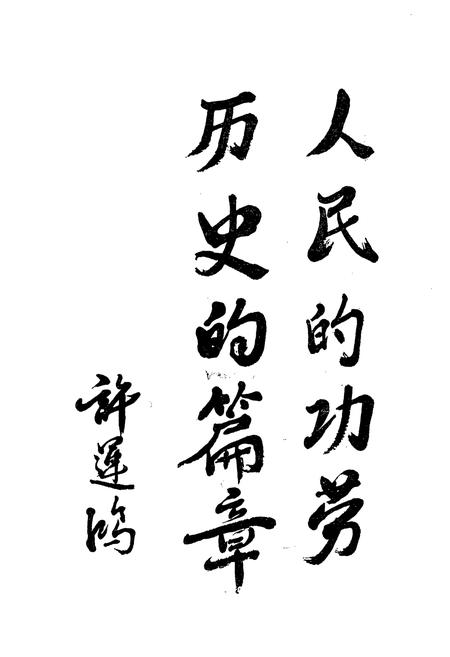 人民的功劳
历史的篇章
許運鴻